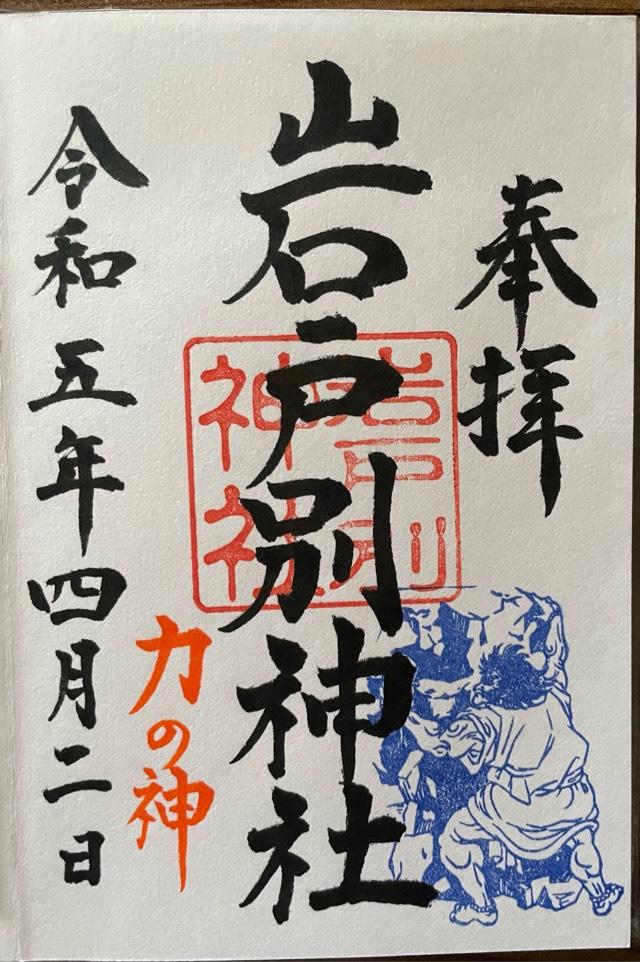 奉拝
岩戸別神社
岩戸別
神社
力の神
令和五年四月二日